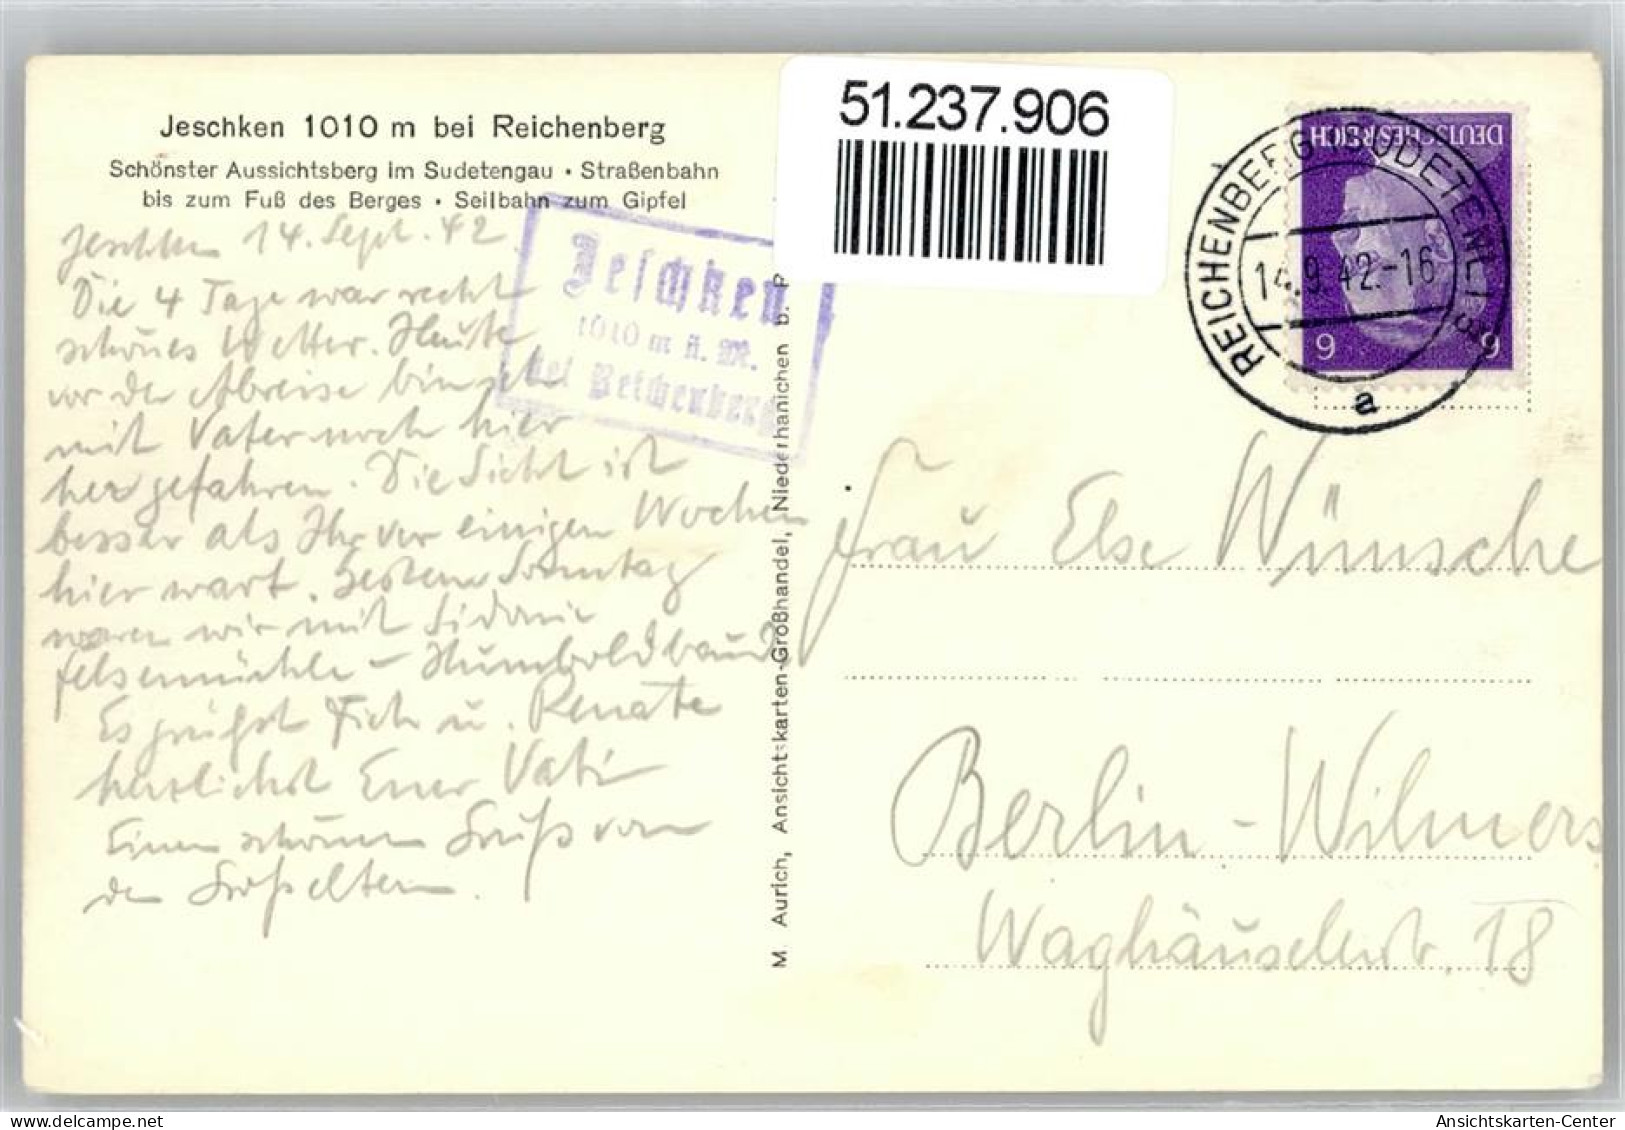 Jeschken 1010 m bei Reichenberg
Schönster Aussichtsberg im Sudetengau • Straßenbahn
bis zum Fuß des Berges • Seilbahn zum Gipfel
Jeschken 14. Sept. 42.
Die 4 Tage war recht
schönes Wetter. Heute
vor der Abreise bin ich
mit Vater noch hier
her gefahren. Die Sicht ist
besser als Ihr vor einigen Wochen
hier wart. Gestern Sonntag
waren wir mit Sidonie
Felsenmühle – Humboldbaude
Es grüßt Dich u. Renate
herzlichst Euer Vati
Einen schönen Gruß von
den Großeltern.
Jeschken
1010 m ü. M.
bei Reichenberg
M. Aurich, Ansichtskarten-Großhandel, Niederhanichen b. R
51.237.906
REICHENBERG (SUDETENL)
14.9.42.-16
a
DEUTSCHES REICH
9 9
Frau Else Wünsche
Berlin-Wilmers
Waghäuselerstr. 18
Ansichtskarten-Center